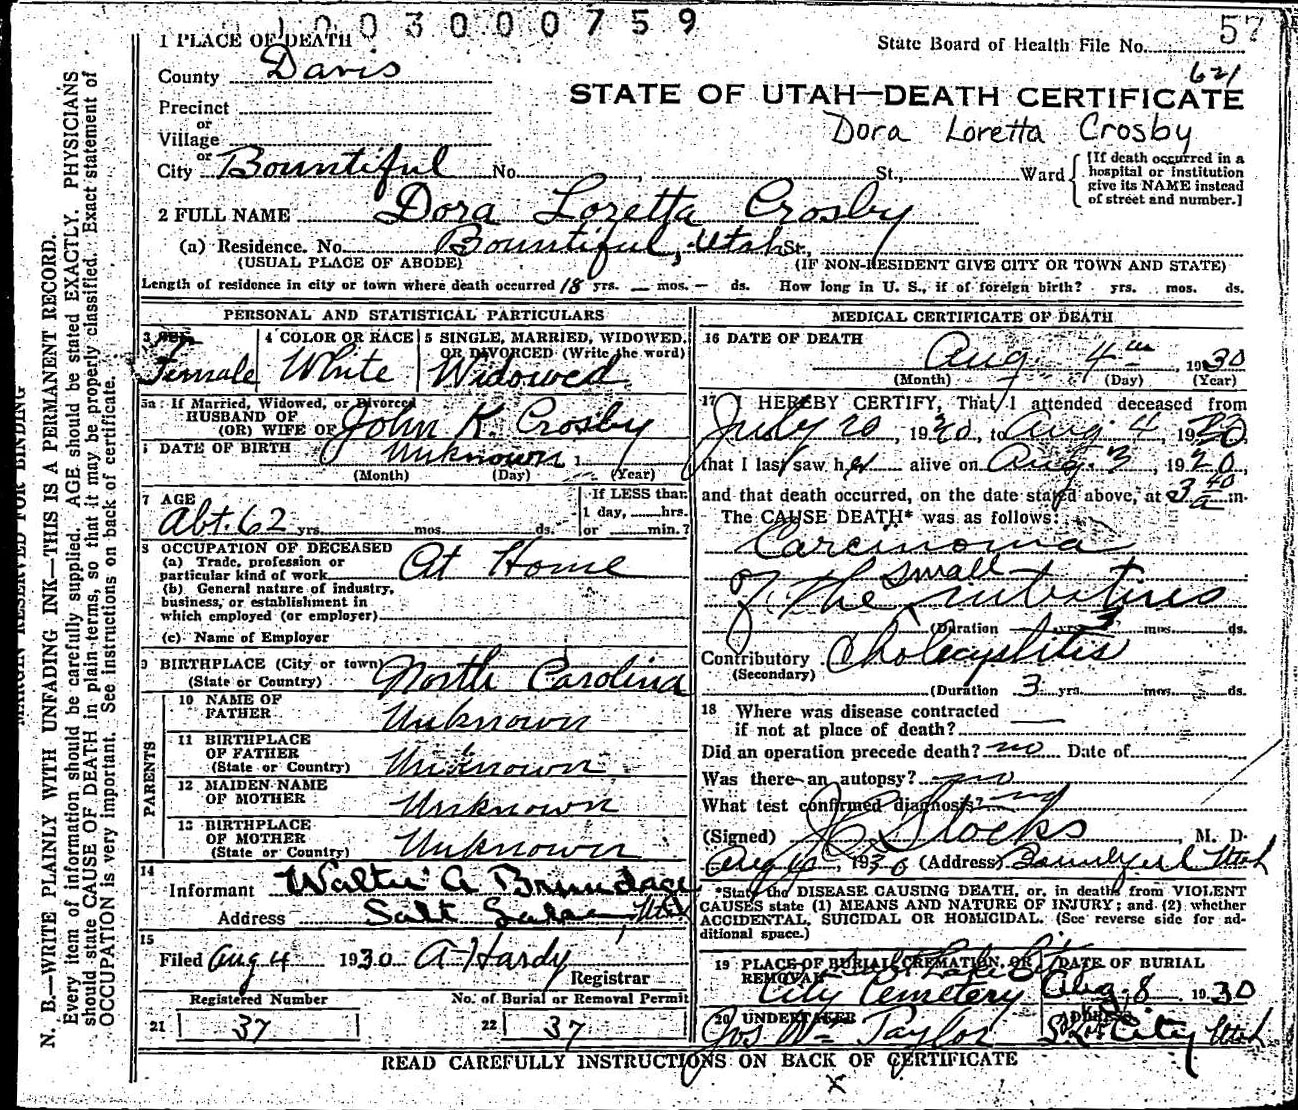 1003000759
57
1 PLACE OF DEATH
State Board of Health File No.
621
County Davis
STATE OF UTAH—DEATH CERTIFICATE
Precinct
or
Village
Dora Loretta Crosby
or
City Bountiful No. , St., Ward
[If death occurred in a hospital or institution give its NAME instead of street and number.]
2 FULL NAME Dora Loretta Crosby
(a) Residence. No. Bountiful, Utah St.,
(USUAL PLACE OF ABODE) (IF NON-RESIDENT GIVE CITY OR TOWN AND STATE)
Length of residence in city or town where death occurred 18 yrs. — mos. — ds. How long in U. S., if of foreign birth? yrs. mos. ds.
PERSONAL AND STATISTICAL PARTICULARS
3 SEX
Female
4 COLOR OR RACE
White
5 SINGLE, MARRIED, WIDOWED,
OR DIVORCED (Write the word)
Widowed
5a If Married, Widowed, or Divorced
HUSBAND OF
(OR) WIFE OF John K. Crosby
DATE OF BIRTH Unknown 1
(Month) (Day) (Year)
7 AGE
Abt. 62 yrs. mos. ds.
If LESS than
1 day, hrs.
or min.?
8 OCCUPATION OF DECEASED
(a) Trade, profession or
particular kind of work At Home
(b) General nature of industry,
business, or establishment in
which employed (or employer)
(c) Name of Employer
9 BIRTHPLACE (City or town)
(State or Country) North Carolina
PARENTS
10 NAME OF
FATHER Unknown
11 BIRTHPLACE
OF FATHER
(State or Country) Unknown
12 MAIDEN NAME
OF MOTHER Unknown
13 BIRTHPLACE
OF MOTHER
(State or Country) Unknown
14
Informant Walter A Brundage
Address Salt Lake Utah
15
Filed Aug 4 1930 A Hardy
Registrar
Registered Number
21 37
No. of Burial or Removal Permit
22 37
MEDICAL CERTIFICATE OF DEATH
16 DATE OF DEATH
Aug 4th, 1930
(Month) (Day) (Year)
17 I HEREBY CERTIFY, That I attended deceased from
July 20, 1930, to Aug 4, 1930,
that I last saw her alive on Aug. 3, 1930,
and that death occurred, on the date stated above, at 3 40 a m.
The CAUSE DEATH* was as follows:
Carcinoma
small
of the intestines
(Duration yrs. 3 mos. ds.
Contributory Cholecystitis
(Secondary)
(Duration 3 yrs. mos. ds.
18 Where was disease contracted
if not at place of death?
Did an operation precede death? no Date of
Was there an autopsy? no
What test confirmed diagnosis?
(Signed) Stocks, M. D.
1930 (Address) Bountiful Utah
*State the DISEASE CAUSING DEATH, or, in deaths from VIOLENT
CAUSES state (1) MEANS AND NATURE OF INJURY; and (2) whether
ACCIDENTAL, SUICIDAL OR HOMICIDAL. (See reverse side for ad-
ditional space.)
19 PLACE OF BURIAL, CREMATION, OR
REMOVAL
Salt Lake City
City Cemetery
DATE OF BURIAL
Aug. 8 1930
20 UNDERTAKER
Jos Wm Taylor
ADDRESS
S.L. City Utah
READ CAREFULLY INSTRUCTIONS ON BACK OF CERTIFICATE
x
MARGIN RESERVED FOR BINDING
N. B.—WRITE PLAINLY WITH UNFADING INK—THIS IS A PERMANENT RECORD.
Every item of information should be carefully supplied. AGE should be stated EXACTLY. PHYSICIANS
should state CAUSE OF DEATH in plain terms, so that it may be properly classified. Exact statement of
OCCUPATION is very important. See instructions on back of certificate.